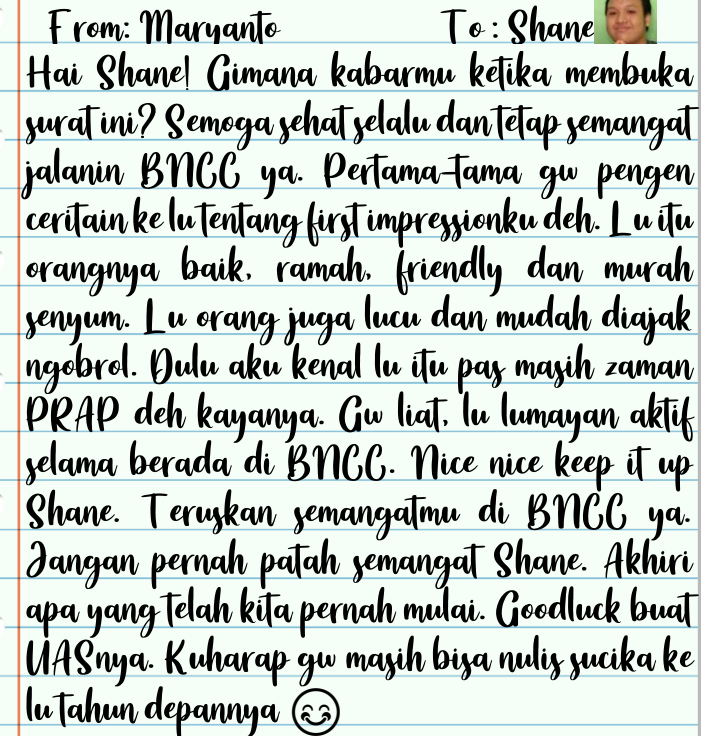 From: Maryanto To : Shane
Hai Shane! Gimana kabarmu ketika membuka
surat ini? Semoga sehat selalu dan tetap semangat
jalanin BNCC ya. Pertama-tama gw pengen
ceritain ke lu tentang first impressionku deh. Lu itu
orangnya baik, ramah, friendly dan murah
senyum. Lu orang juga lucu dan mudah diajak
ngobrol. Dulu aku kenal lu itu pas masih zaman
PRAP deh kayanya. Gw liat, lu lumayan aktif
selama berada di BNCC. Nice nice keep it up
Shane. Teruskan semangatmu di BNCC ya.
Jangan pernah patah semangat Shane. Akhiri
apa yang telah kita pernah mulai. Goodluck buat
UASnya. Kuharap gw masih bisa nulis sucika ke
lu tahun depannya 😊